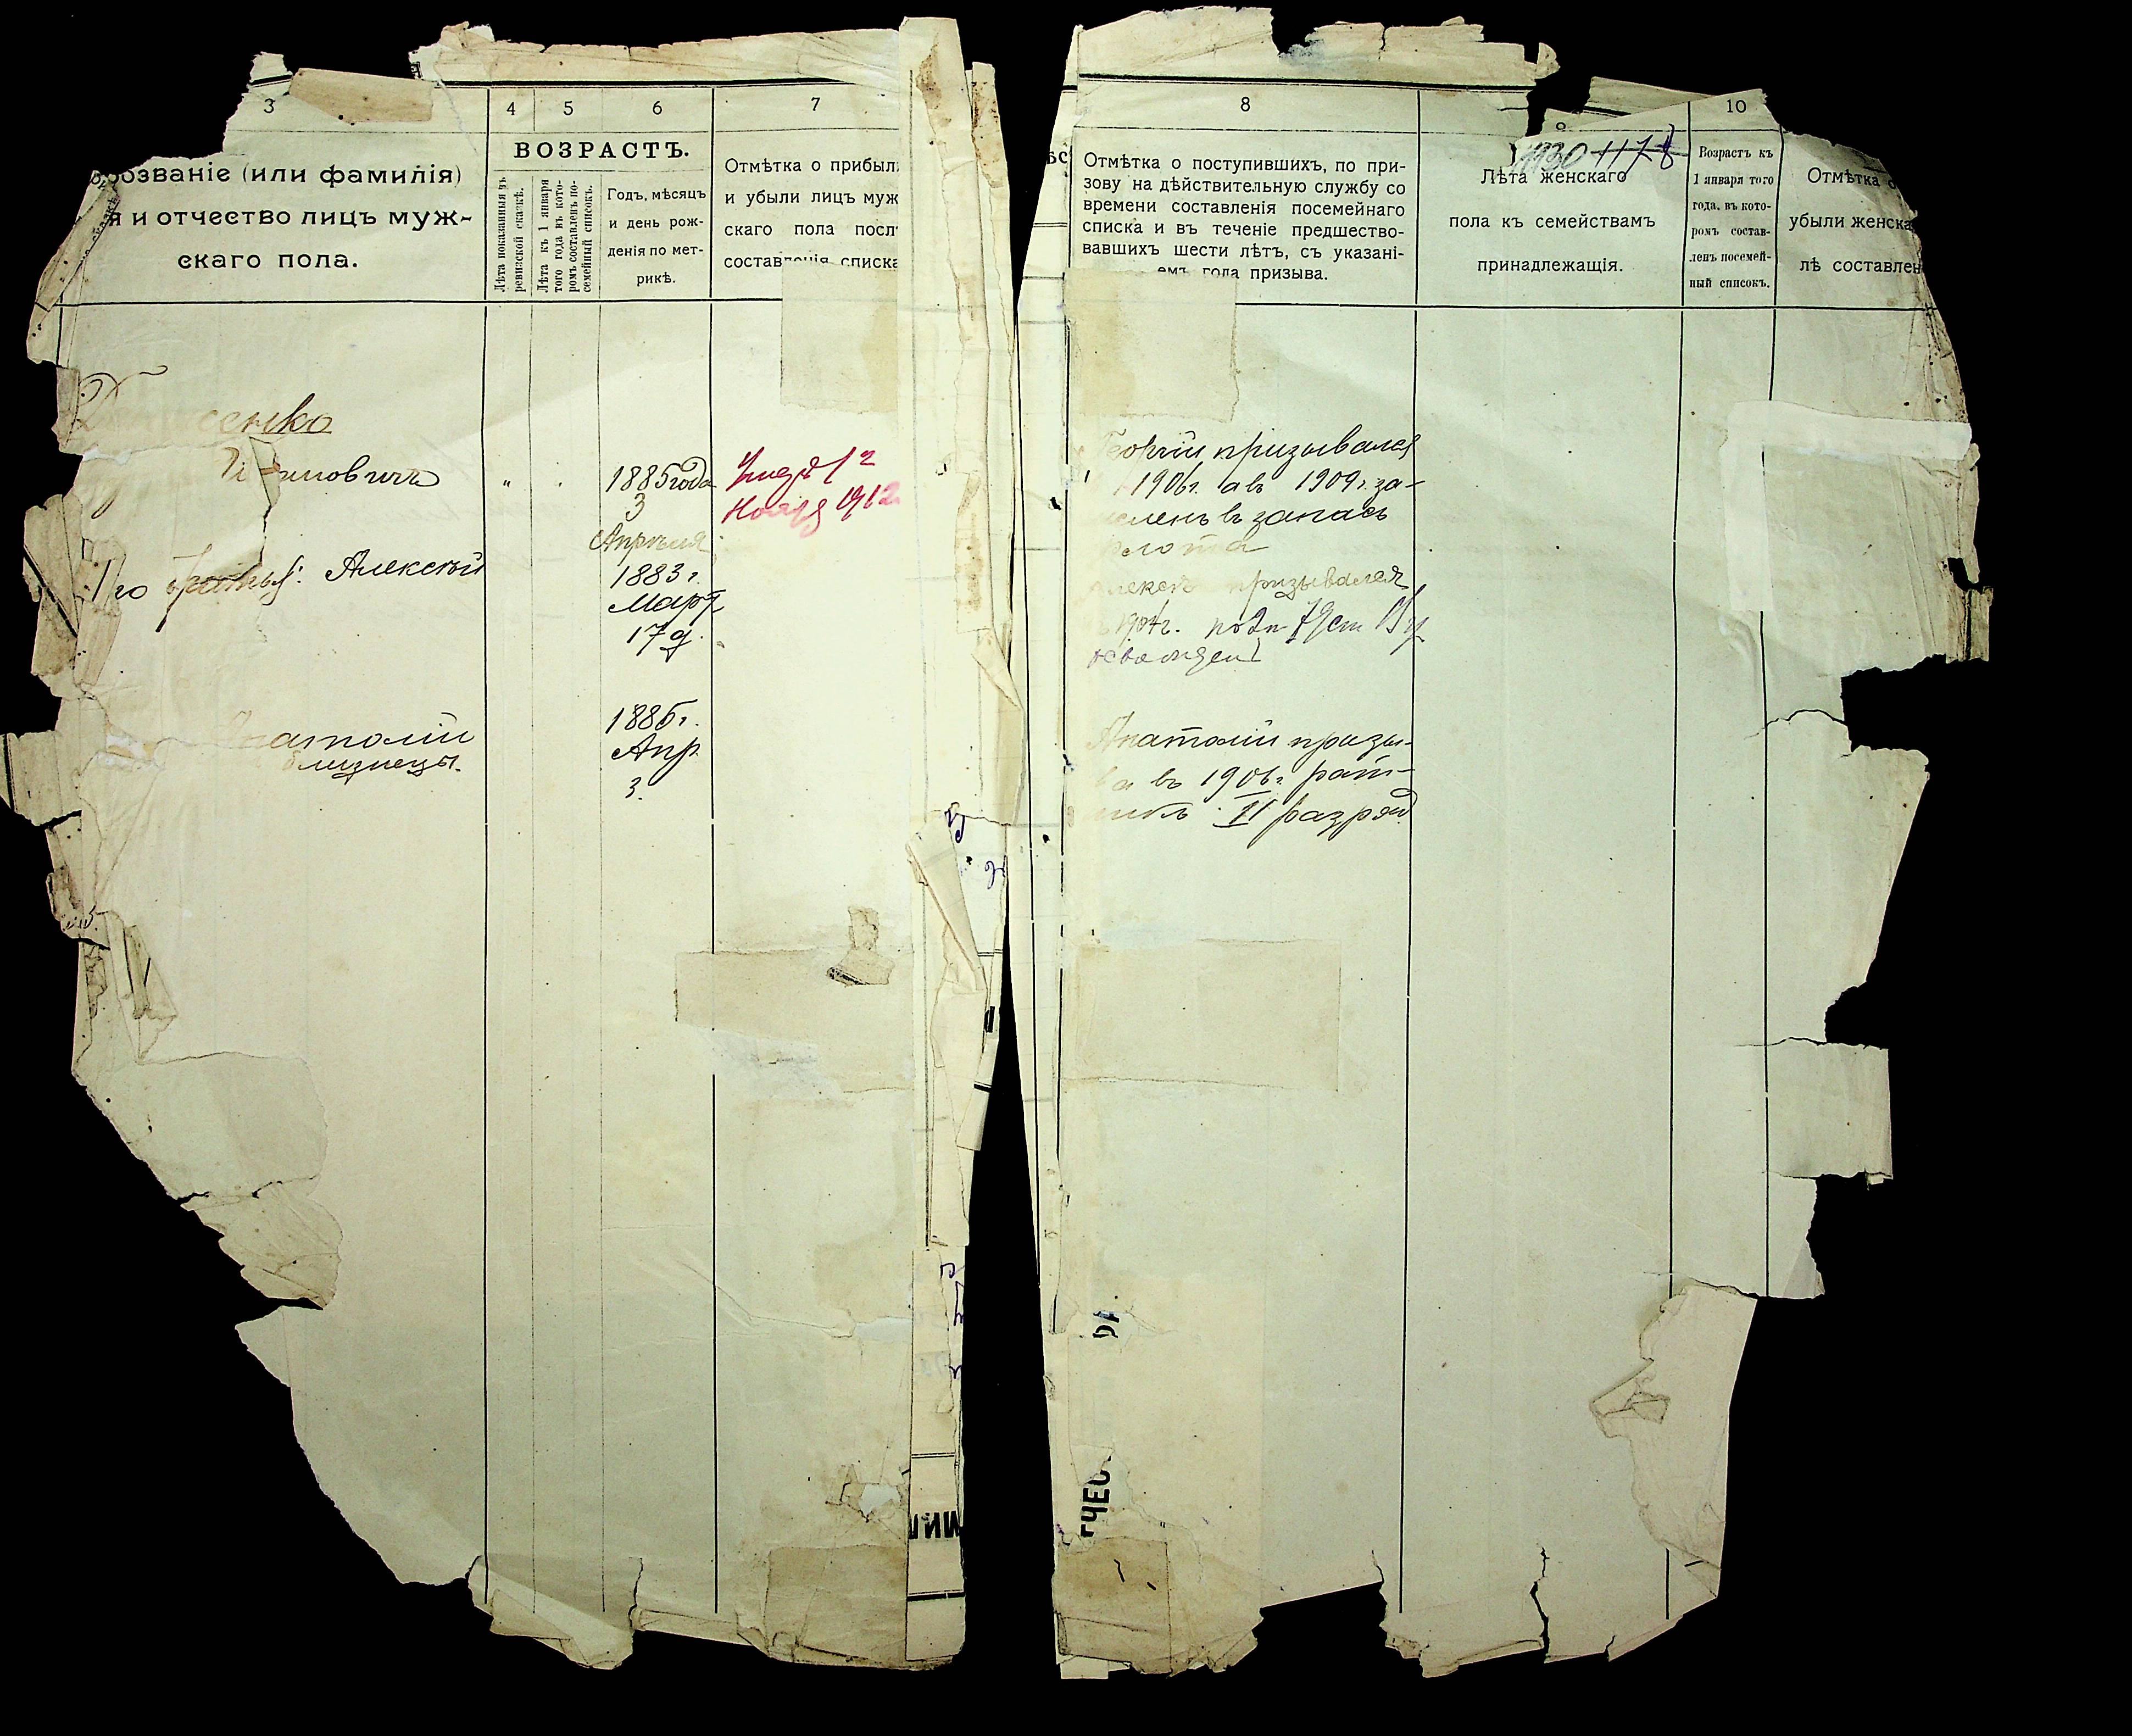 3
розваніе (или фамилія)
я и отчество лицъ муж-
скаго пола.
4
5
6
ВОЗРАСТЪ.
Лѣта показанныя въ
ревизской сказкѣ.
Лѣта къ 1 января
того года въ кото-
ромъ составленъ по-
семейный списокъ.
Годъ, мѣсяцъ
и день рож-
денія по мет-
рикѣ.
7
Отмѣтка о прибыли
и убыли лицъ муж
скаго пола посл
составленія списка
8
Отмѣтка о поступившихъ, по при-
зову на дѣйствительную службу со
времени составленія посемейнаго
списка и въ теченіе предшество-
вавшихъ шести лѣтъ, съ указані-
емъ года призыва.
1930 1178
Лѣта женскаго
пола къ семействамъ
принадлежащія.
10
Возрастъ къ
1 января того
года, въ кото-
ромъ состав-
ленъ посемей-
ный списокъ.
Отмѣтка о
убыли женска
лѣ составлен
енко
новичъ
1885 года
3
Апрѣля
2
Ноября 1912
Георгій призывался
1906г. а въ 1909 г. за-
численъ въ запасъ
флота
Его братья: Алексѣй
1883 г.
Март
17 д.
Алексѣй призывался
в 1904г.
Анатолій
близнецы.
1885 г.
Апр.
3.
Анатолій призы-
ва въ 1906г. рат-
никъ II разряд
ЕЧЕС